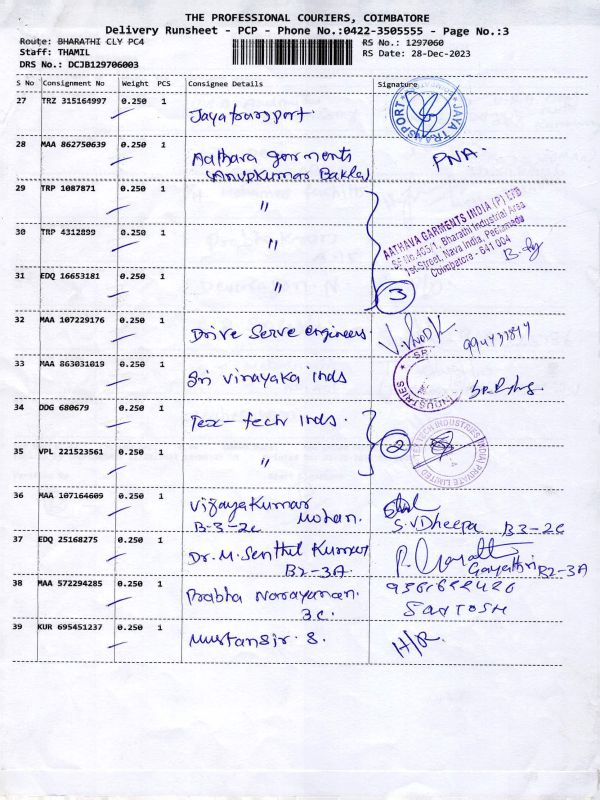 THE PROFESSIONAL COURIERS, COIMBATORE
Delivery Runsheet - PCP - Phone No.:0422-3505555 - Page No.:3
Route: BHARATHI CLY PC4
RS No.: 1297060
Staff: THAMIL
RS Date: 28-Dec-2023
DRS No.: DCJB129706003
S No Consignment No Weight PCS Consignee Details Signature
27 TRZ 315164997 0.250 1 Jayatransport.
JAYA TRANSPORT
28 MAA 862750639 0.250 1 Aathava garments
(Anupkumar Bakla) PNA.
29 TRP 1087871 0.250 1 "
AATHAVA GARMENTS INDIA (P) LTD
SF No.465/1, Bharathi Industrial Area
1st Street, Nava India, Peelamedu
Coimbatore - 641 004
30 TRP 4312899 0.250 1 "
31 EDQ 16653181 0.250 1 " 3
32 MAA 107229176 0.250 1 Drive Serve engineers. V.VINOD K
33 MAA 863031019 0.250 1 Sri Vinayaka inds
INDUSTRIES
34 DDG 680679 0.250 1 Tex-tech inds. 2
TEX TECH INDUSTRIES (INDIA) PRIVATE LIMITED
35 VPL 221523561 0.250 1 "
36 MAA 107164609 0.250 1 Vijayakumar
Mohan.
B-3-2c S.V Dheepa B3-2C
37 EDQ 25168275 0.250 1 Dr.M.Senthil Kumar
B2-3A Gayathri B2-3A
38 MAA 572294285 0.250 1 Prabha Narayanan.
3.C. SANTOSH
39 KUR 695451237 0.250 1 Mustansir. S. H/R.